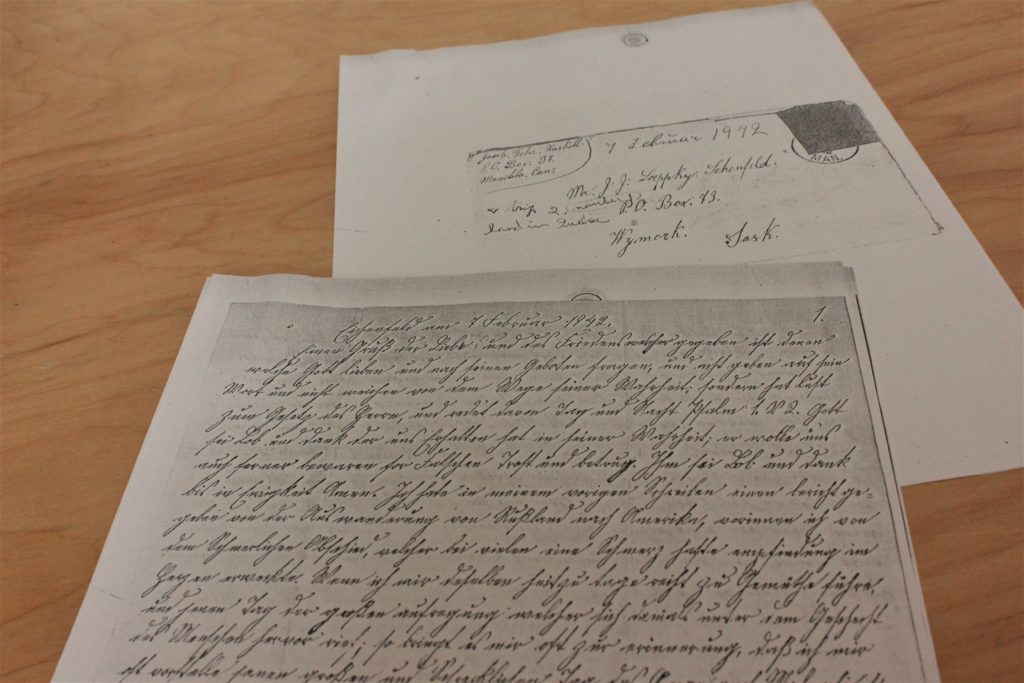 Jacob Fehr.
P.O. Box. 37.
Manitoba, Can.
7 Februar 1942
MAN.
Mr. J. J. Leppky. Schönfeld.
P.O. Box. 73.
Wymark. Sask.
land in
am 7 Februar 1942. 1.
Einen Gruß der Liebe: und des Friedens welcher gegeben ist denen
welche Gott lieben und nach seinen Geboten fragen, und acht geben auf sein
Wort und nicht weichen von dem Wege seiner Wahrheit; sondern hat lust
zum Gesetz des Herrn, und redet davon Tag und Nacht Psalm 1. V 2. Gott
sei Lob und dank der uns Erhalten hat in seiner Wahrheit; er wolle uns
auch ferner bewaren for Falschen Trost und betrug. Ihm sei Lob und dank
bis in Ewigkeit Amen. Ich habe in meinem vorigen Schreiben einen bericht ge-
geben von der Auswanderung von Rußland nach Amerika, worinnen ich von
dem Schmerlichen Abschied, welcher bei vielen eine Schmerz hafte empfindung im
Herzen erweckte. Wenn ich mir deßelben heitzu tage recht zu Gemüthe führe,
und jenen Tag der großen aufregung welcher sich damals unter dem Geschlecht
des Menschen hervor rief; so bringt es mir oft zur erinnerung, daß ich mir
oft vorstelle jenen großen und Schrecklichen Tag des